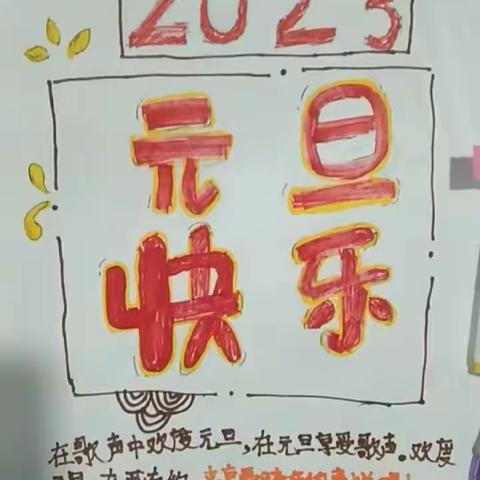 2023
元旦
快乐
在歌声中欢度元旦,在元旦享受歌声。欢度